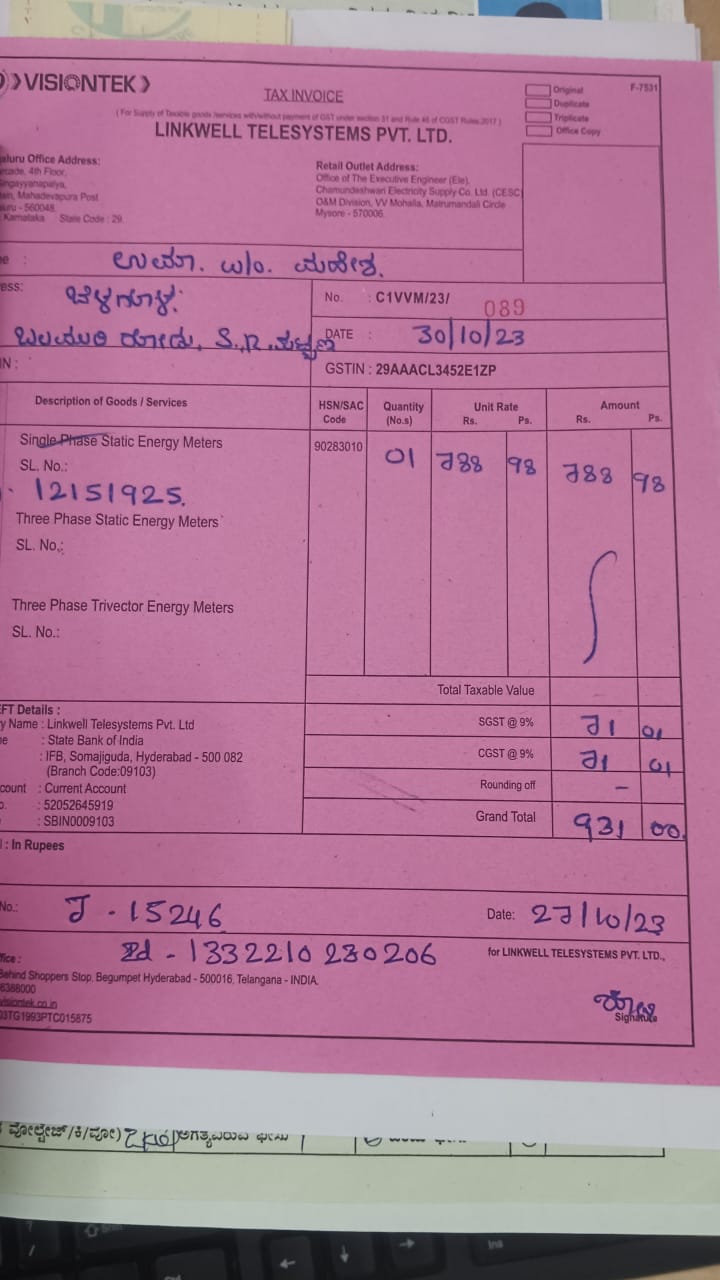 ❯VISIONTEK❯
TAX INVOICE
Original
Duplicate
Triplicate
Office Copy
F-7531
(For Supply of Taxable goods /services with/without payment of GST under section 31 and Rule 46 of CGST Rules 2017)
LINKWELL TELESYSTEMS PVT. LTD.
aluru Office Address:
4th Floor,
Mahadevapura Post
uru - 560048.
Karnataka State Code : 29.
Retail Outlet Address:
Office of The Executive Engineer (Ele),
Chamundeshwari Electricity Supply Co. Ltd. (CESC)
O&M Division, VV Mohalla, Matrumandali Circle
Mysore - 570006.
e : ಉಮಾ. w/o. ಮಹೇಶ.
ess: ಬೆಳಗೂಳ.
No. : C1VVM/23/ 089
S.R.
DATE : 30/10/23
IN :
GSTIN : 29AAACL3452E1ZP
Description of Goods / Services HSN/SAC Code Quantity (No.s) Unit Rate Rs. Ps. Amount Rs. Ps.
Single Phase Static Energy Meters 90283010 01 788 98 788 98
SL. No.:
12151925.
Three Phase Static Energy Meters
SL. No.:
Three Phase Trivector Energy Meters
SL. No.:
Total Taxable Value
EFT Details :
y Name : Linkwell Telesystems Pvt. Ltd
SGST @ 9% 71 01
e : State Bank of India
: IFB, Somajiguda, Hyderabad - 500 082
CGST @ 9% 71 01
(Branch Code:09103)
count : Current Account
Rounding off -
o. : 52052645919
: SBIN0009103
Grand Total 931 00.
: In Rupees
No.: J - 15246
Date: 27/10/23
Rd - 1332210230206
for LINKWELL TELESYSTEMS PVT. LTD.,
ffice :
Behind Shoppers Stop, Begumpet Hyderabad - 500016, Telangana - INDIA.
6388000
visiontek.co.in
03TG1993PTC015875
Signature
ವೋಲ್ಟೇಜ್/ಕಿ/ವೋ)
Ins